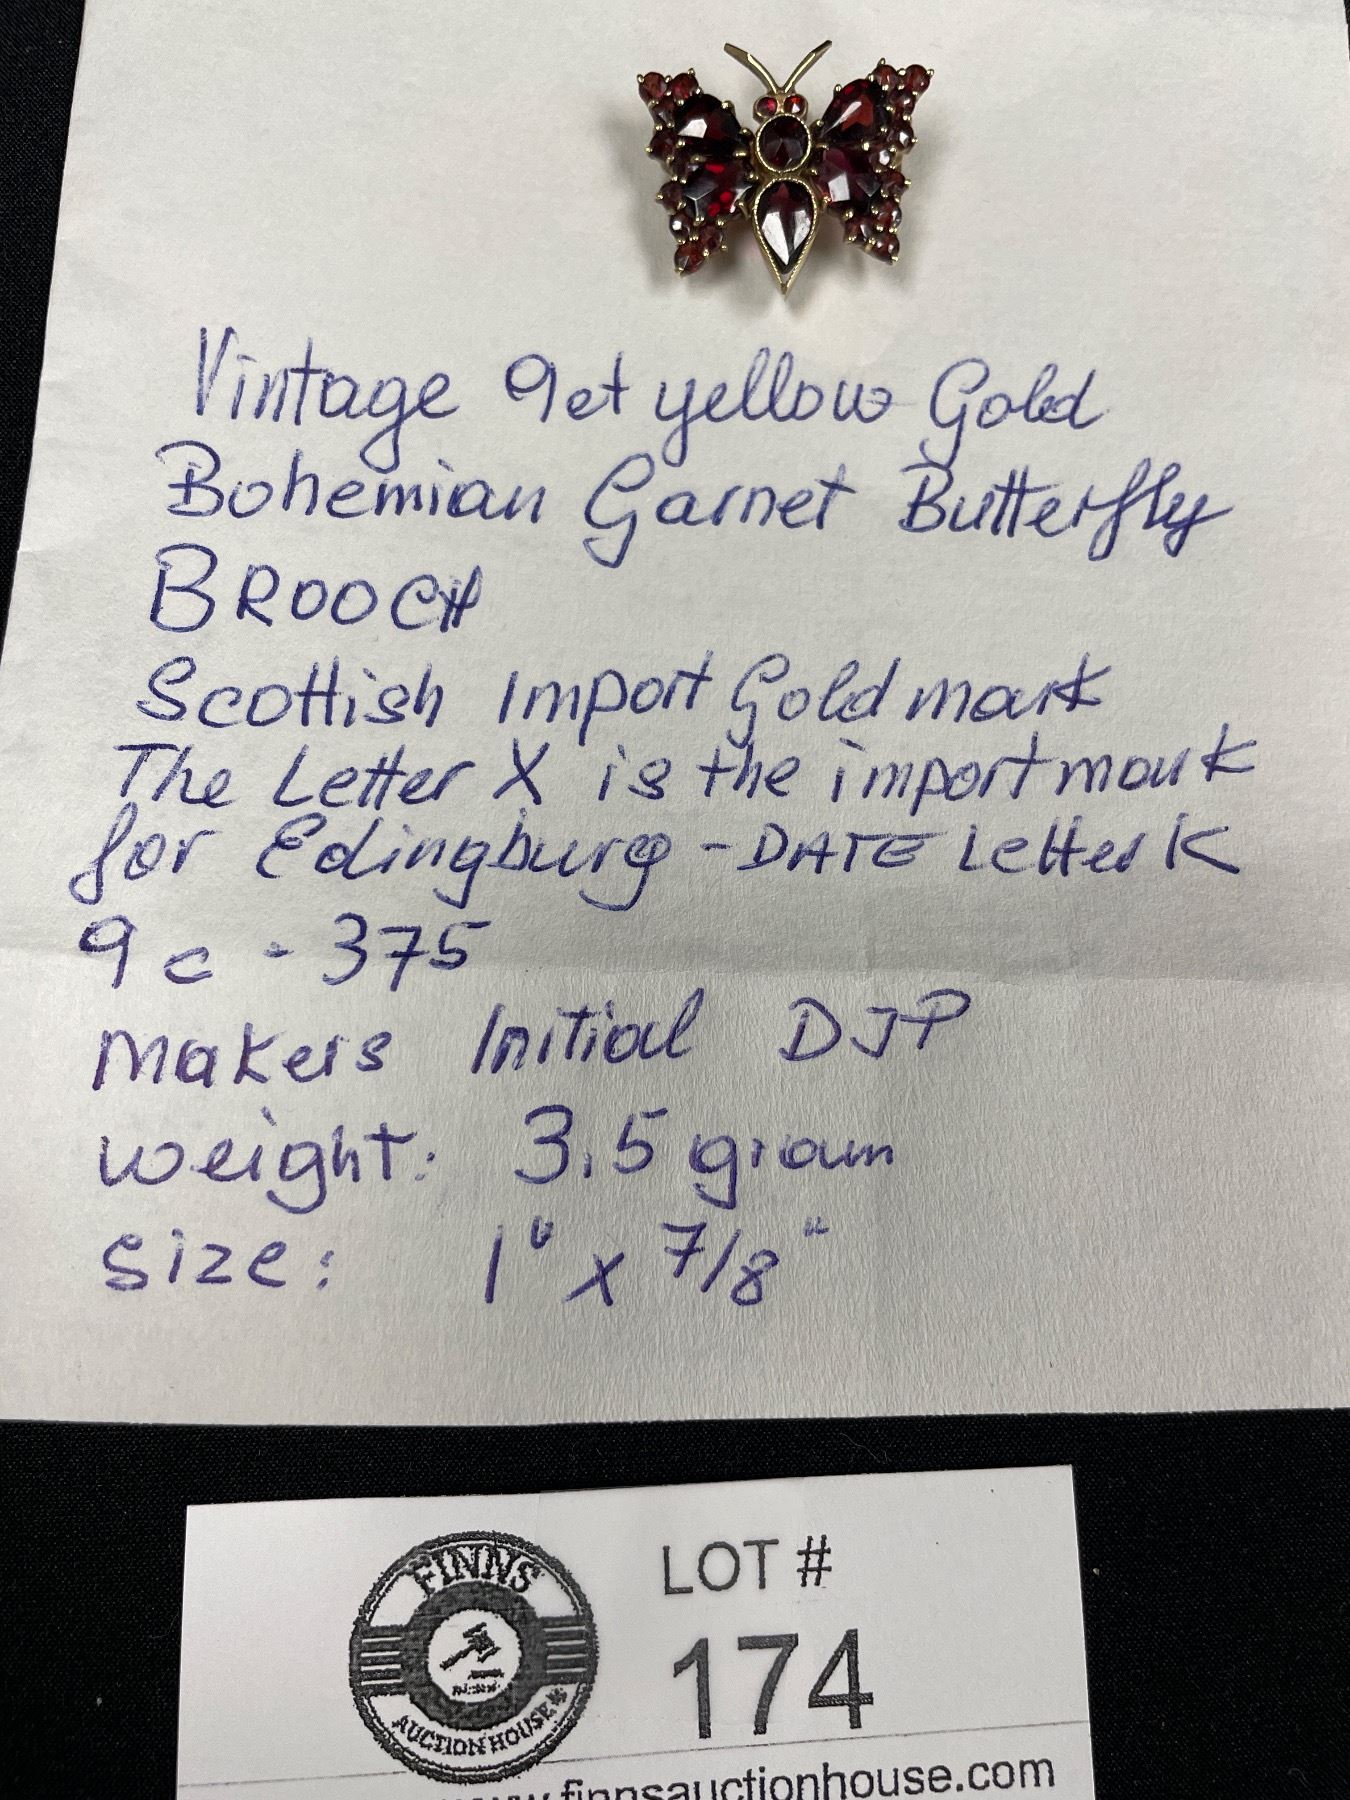 Vintage 9ct yellow Gold
Bohemian Garnet Butterfly
BROOCH
Scottish Import Gold mark
The Letter X is the import mark
for Edingburg - DATE Letter K
9c - 375
Makers Initial DJP
weight: 3,5 gram
size: 1" x 7/8"
FINNS
AUCTION HOUSE
LOT #
174
www.finnsauctionhouse.com